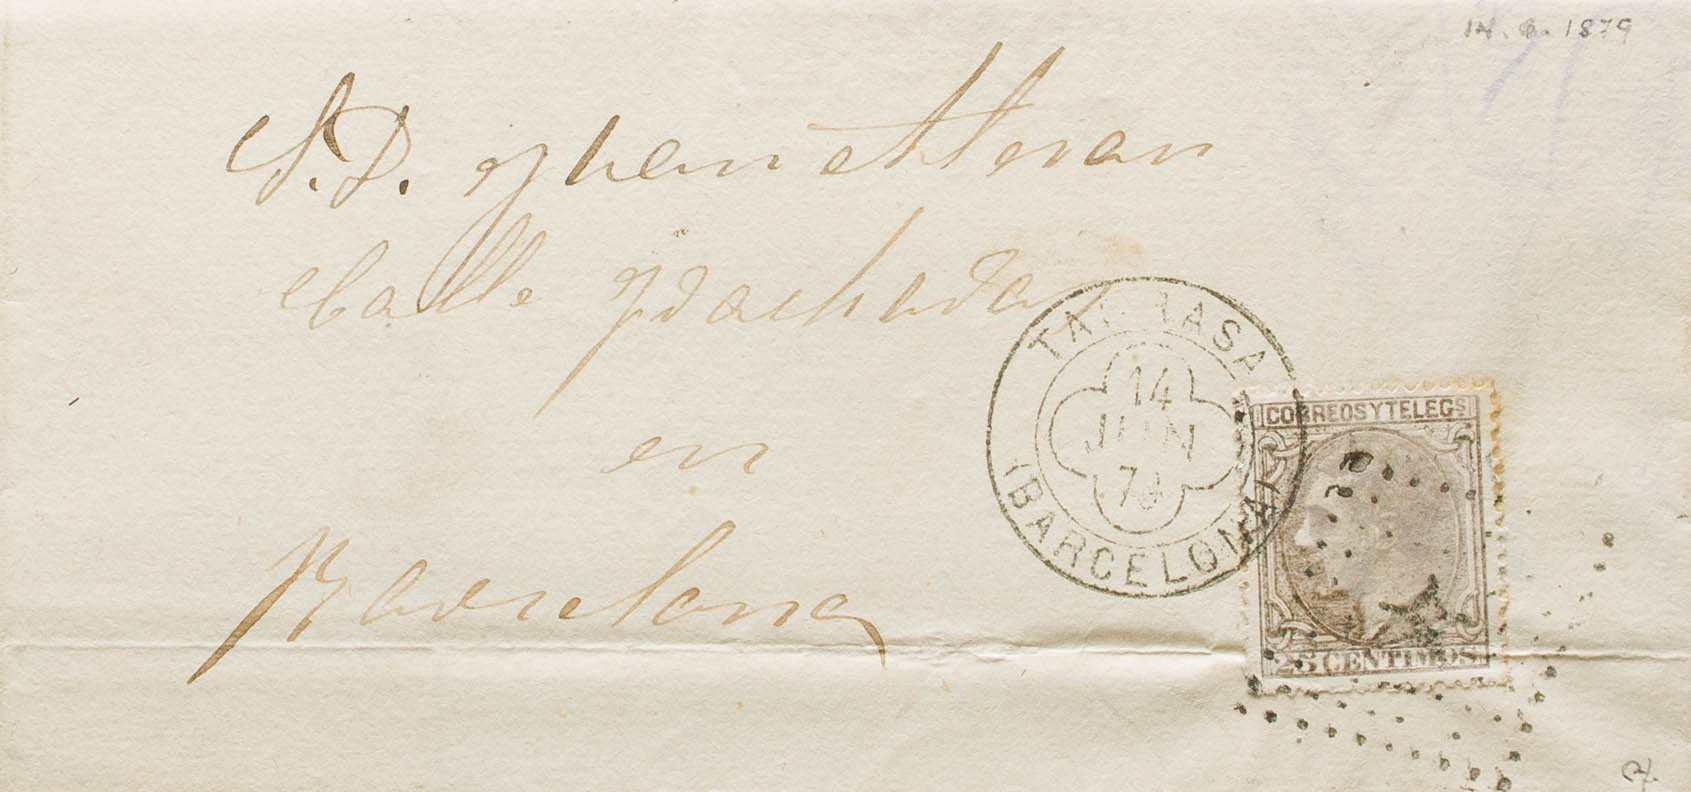 14. 6. 1879
S.D. Juan
Calle
en
Barcelona
TARRASA
14
JUN
79
(BARCELONA)
CORREOS Y TELEGS
25 CENTIMOS